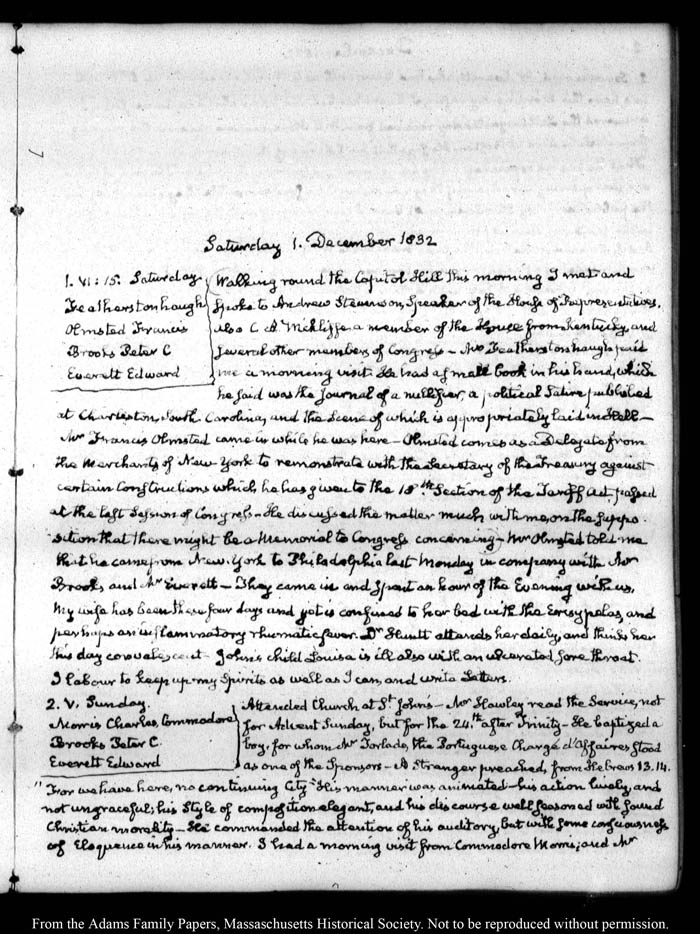 Saturday 1. December 1832
1. VI: 15. Saturday
Featherstonhaugh
Olmsted Francis
Brooks Peter C
Everett Edward
Walking round the Capitol Hill this morning I met and
spoke to Andrew Stevenson, Speaker of the House of Representatives,
also C. A. Wickliffe a member of the House from Kentucky, and
several other members of Congress — Mr Featherstonhaugh paid
me a morning visit. He had a small book in his hand, which
he said was the Journal of a nullifier, a political Satire published
at Charleston, South Carolina, and the Scene of which is appropriately laid in Hell —
Mr Francis Olmsted came in while he was here — Olmsted comes as a Delegate from
the Merchants of New-York to remonstrate with the Secretary of the Treasury against
certain Constructions which he has given to the 18th Section of the Tariff Act, passed
at the last Session of Congress — He discussed the matter much with me, on the suppo-
sition that there might be a Memorial to Congress concerning — Mr Olmsted told me
that he came from New-York to Philadelphia last Monday in company with Mr
Brooks and Mr Everett — They came in and spent an hour of the Evening with us,
My wife has been these four days and yet is confined to her bed with the Erysypelas, and
perhaps an inflammatory rheumatic fever. Dr Huntt attends her daily, and thinks her
this day convalescent — John's child Louisa is ill also with an ulcerated sore throat.
I labour to keep up my Spirits as well as I can, and write Letters.
2. V. Sunday.
Morris Charles, Commodore
Brooks Peter C.
Everett Edward
Attended Church at St John's — Mr Hawley read the Service, not
for Advent Sunday, but for the 24th after Trinity — He baptized a
boy, for whom Mr Torlade, the Portuguese Chargé d'Affaires stood
as one of the Sponsors — A Stranger preached, from Hebrews 13. 14.
"For we have here, no continuing City" His manner was animated — his action lively, and
not ungraceful; his Style of composition elegant, and his discourse well seasoned with sound
Christian morality — He commanded the attention of his auditory, but with some consciousness
of Eloquence in his manner. I had a morning visit from Commodore Morris; and Mr
From the Adams Family Papers, Massachusetts Historical Society. Not to be reproduced without permission.